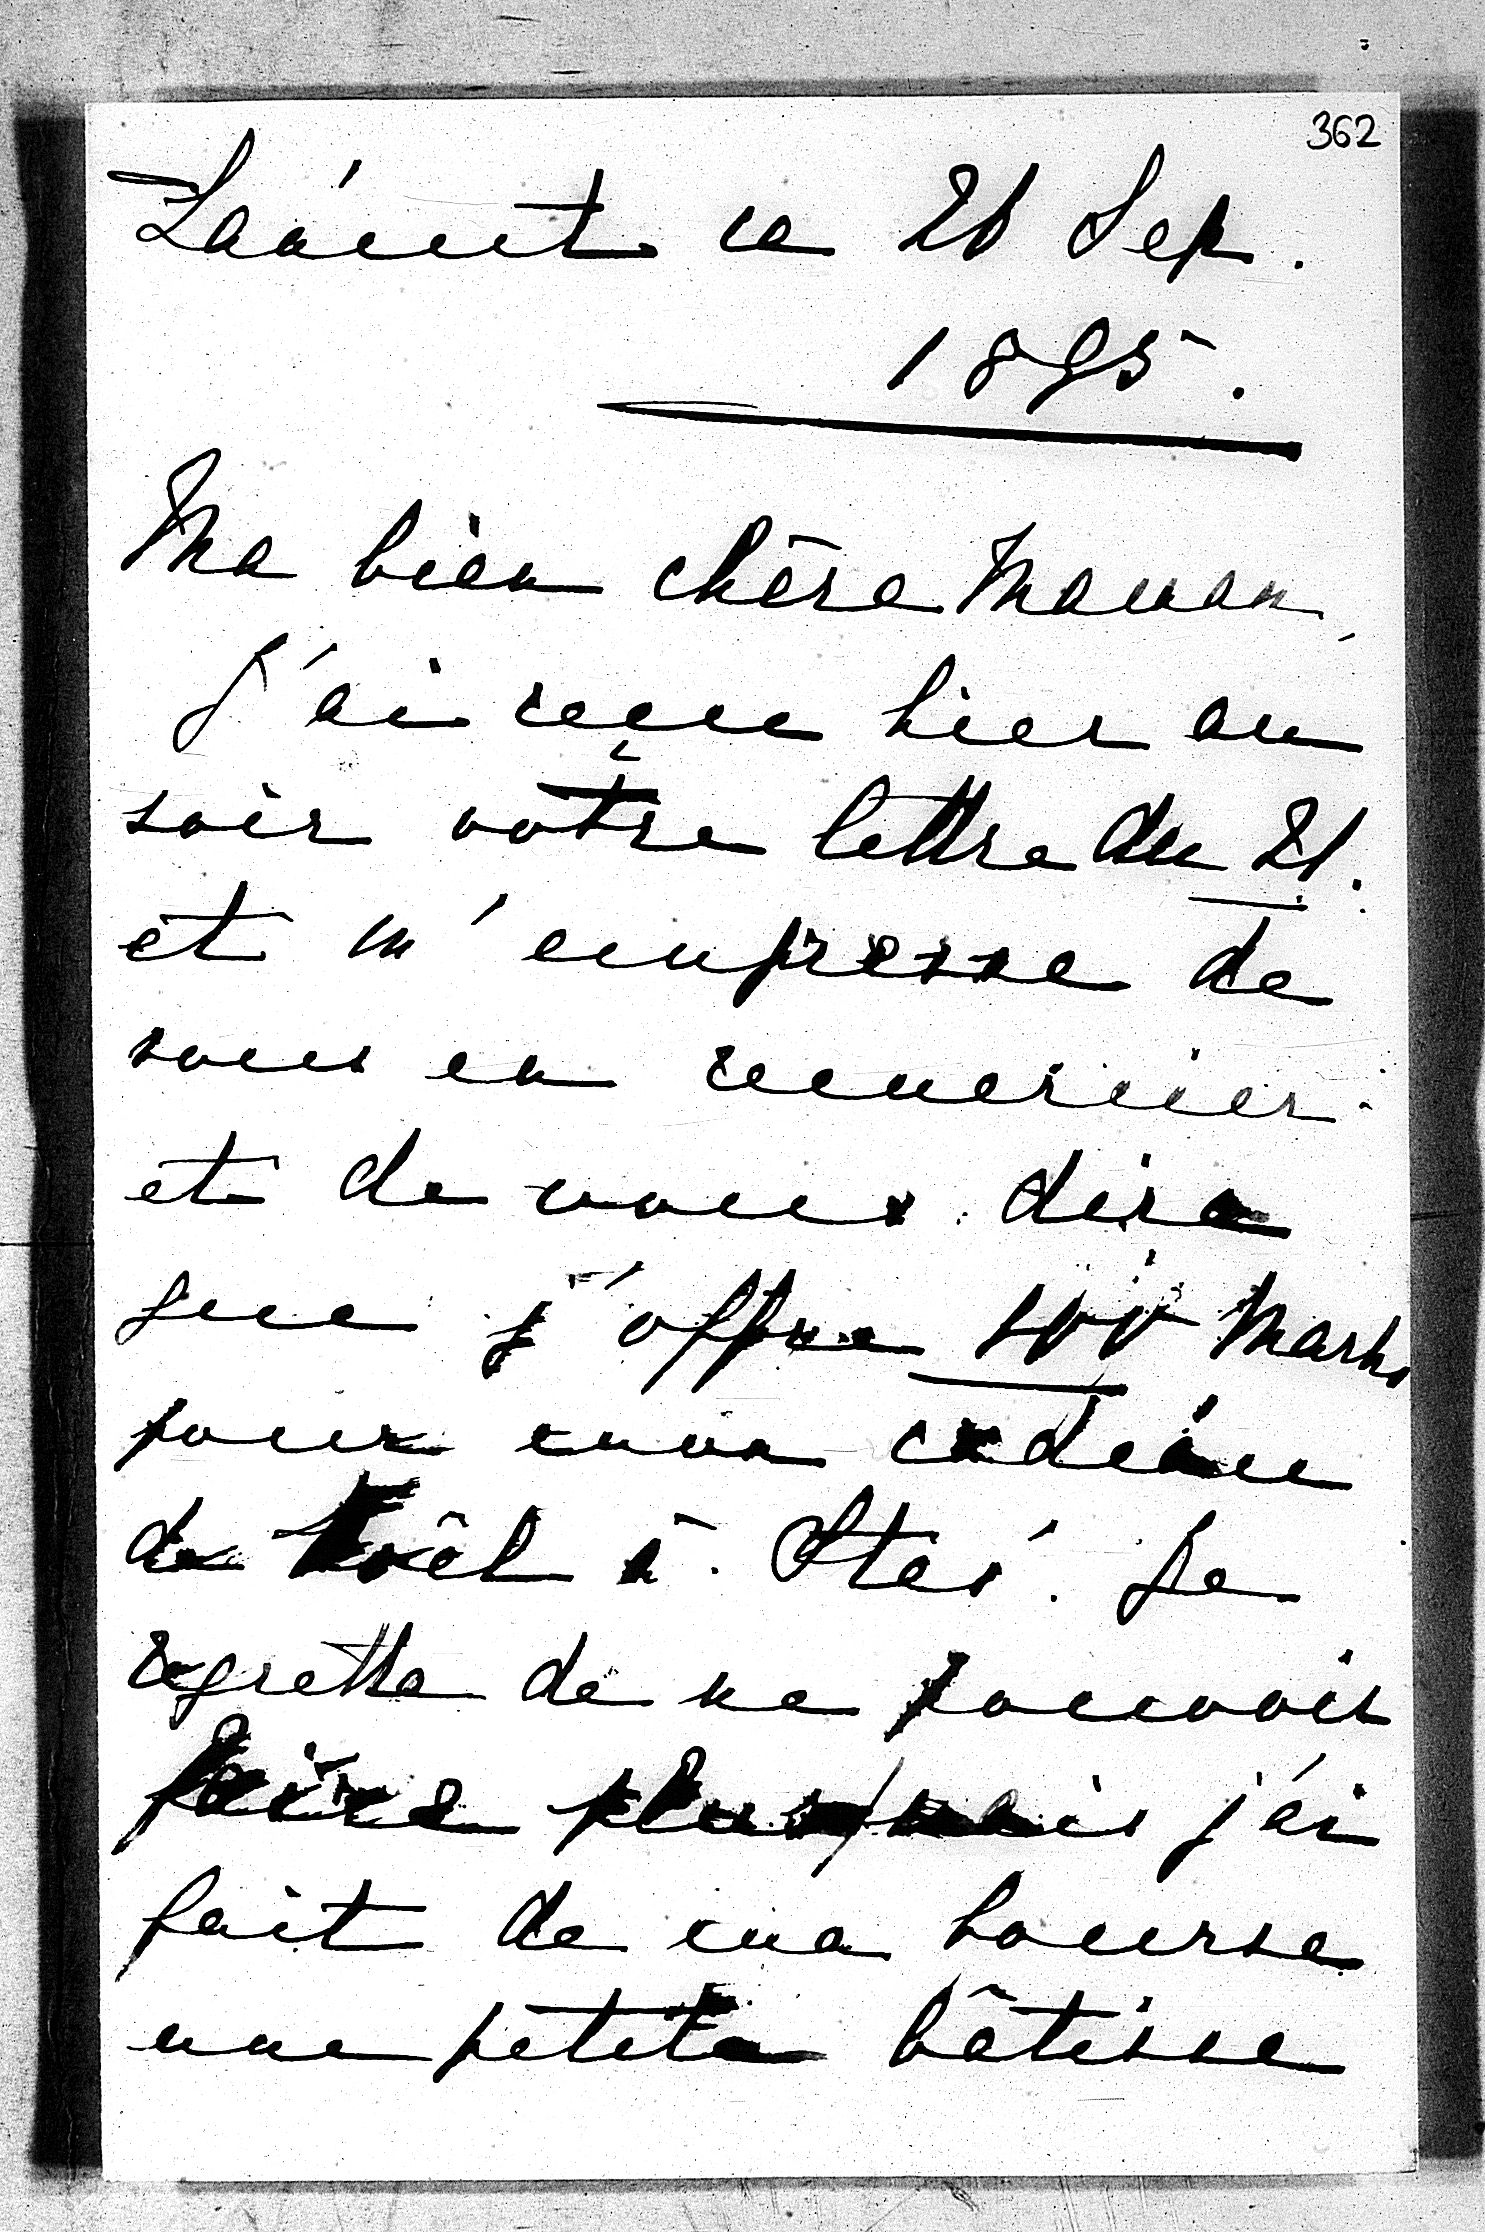 362
ce 26 Sep.
1895.
Ma bien chère Maman,
J'ai reçue hier au
soir vôtre lettre du 21.
et m'empresse de
vous en remercier
et de vous dire
que j'offre 100 Marks
pour mon cadeau
de Noël à Steï. Je
regrette de ne pouvoir
faire plus, mais j'ai
fait de ma bourse
une petite bâtisse